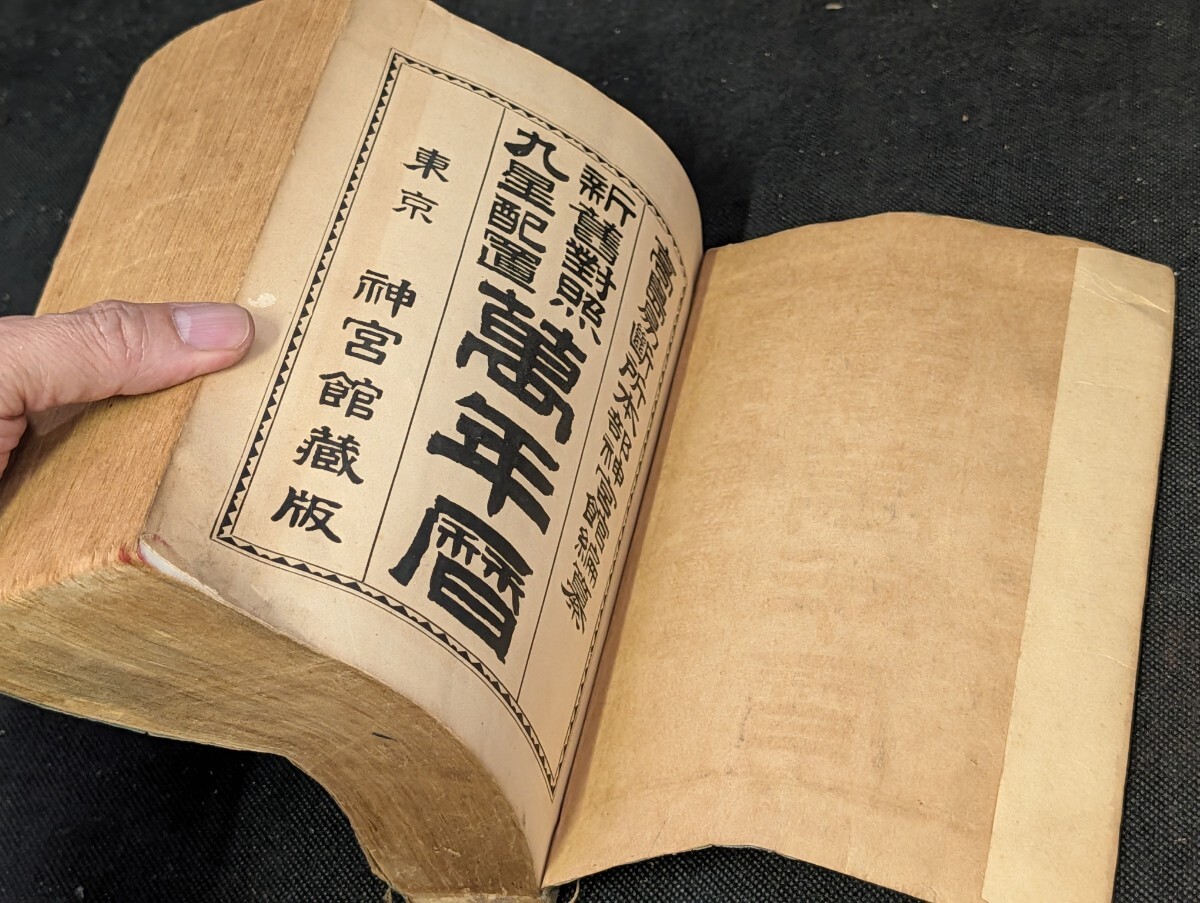 新舊對照
九星配置
萬年暦
東京 神宮館藏版